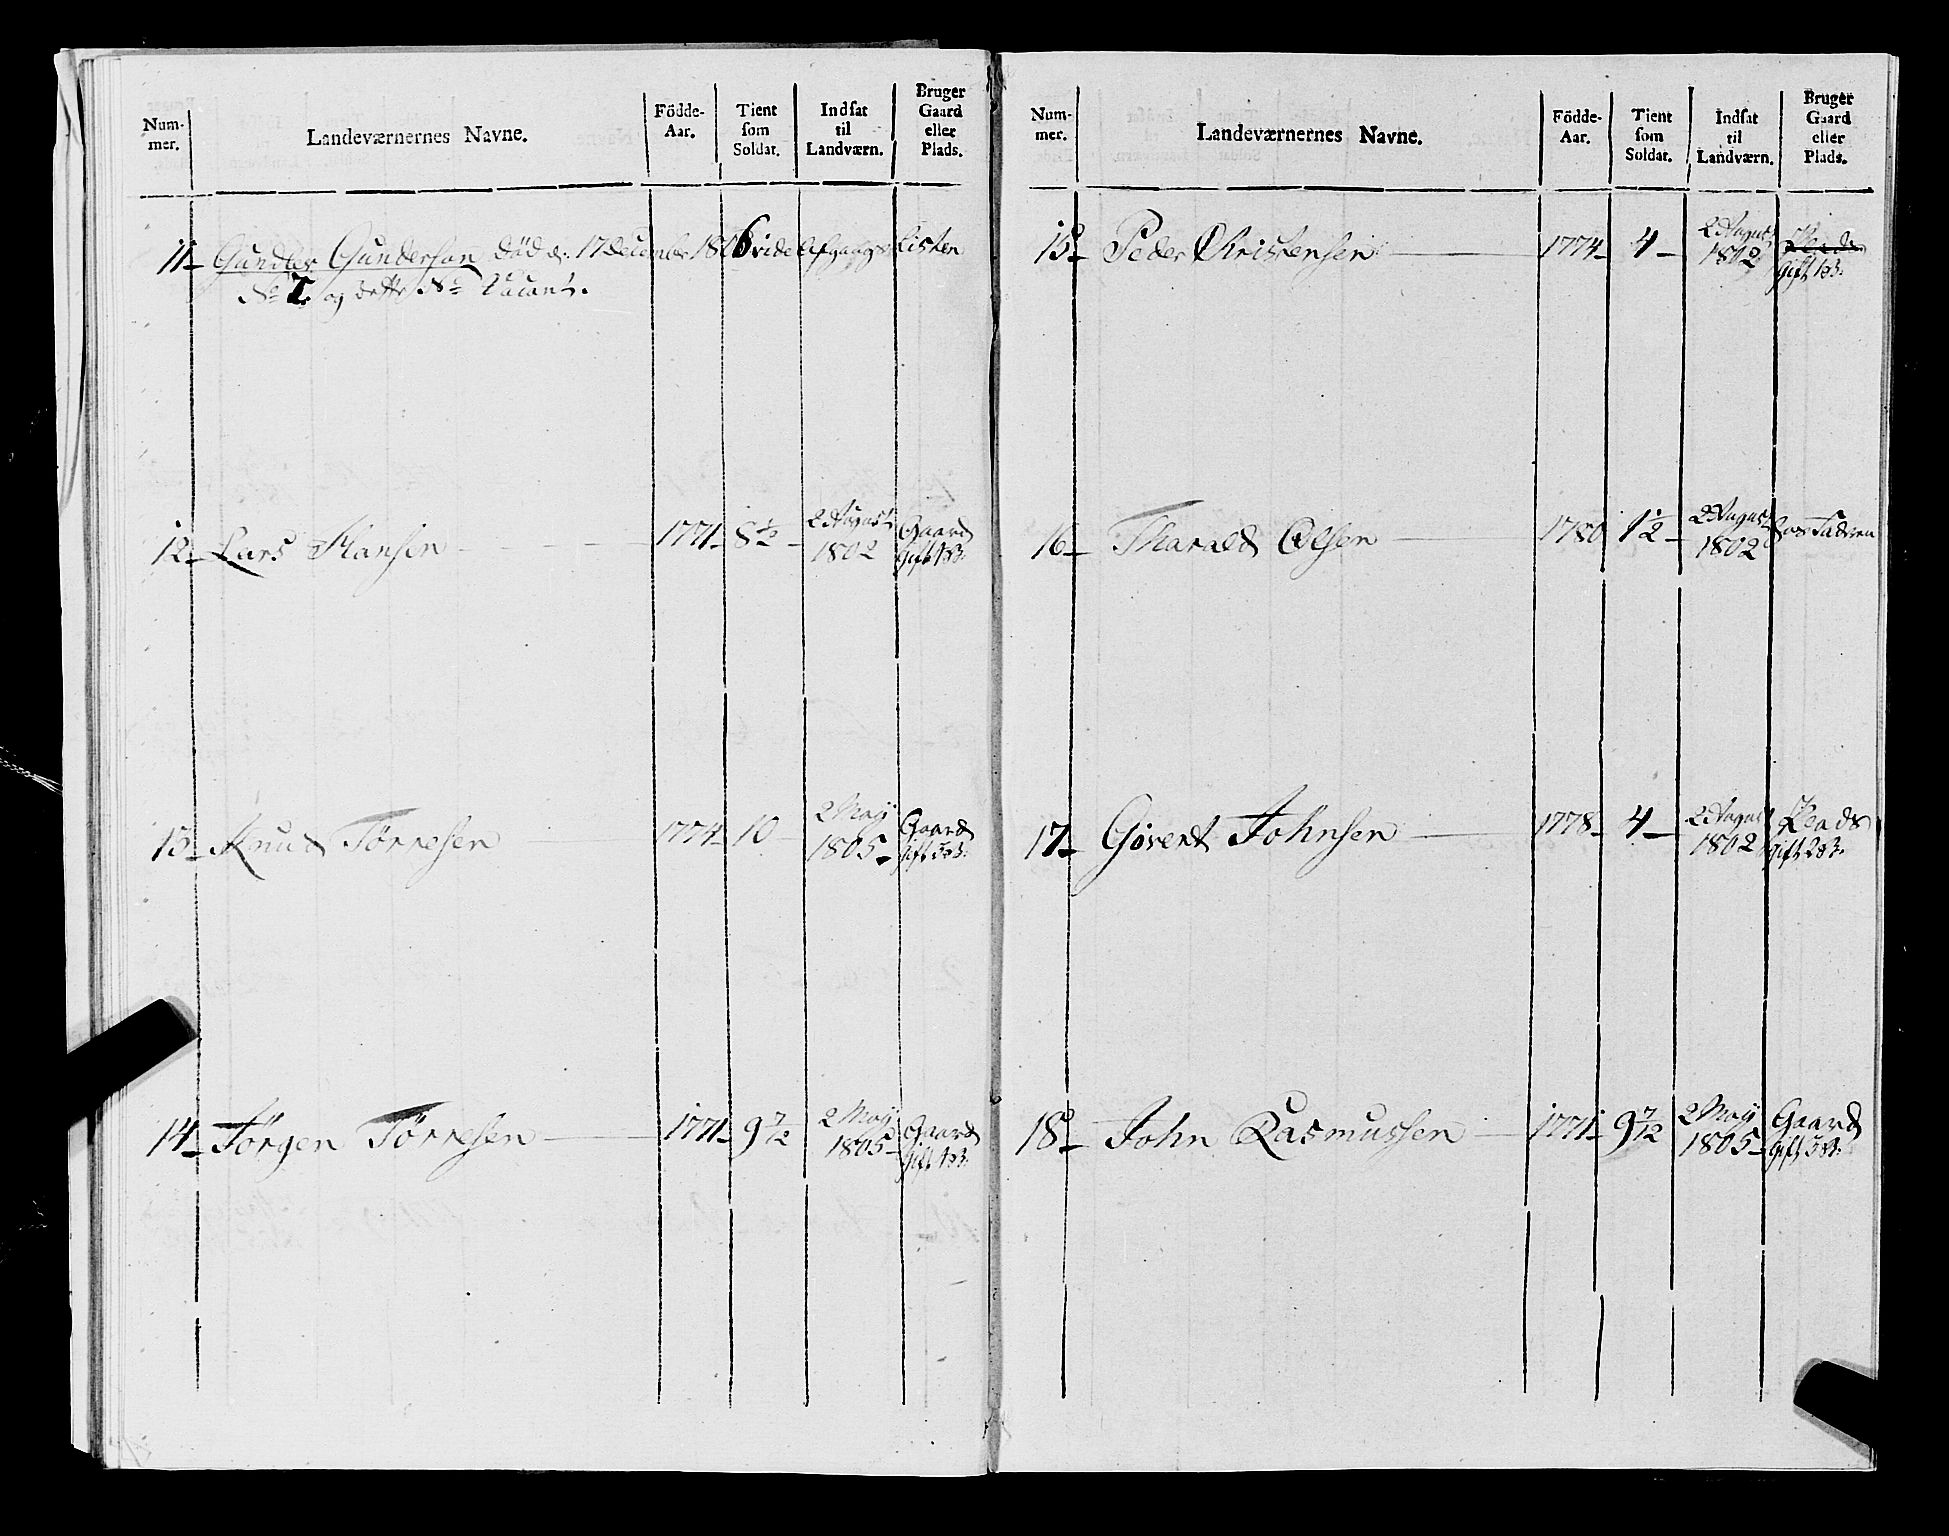 Num-
mer.
Landeværnernes Navne.
Födde-
Aar.
Tient
som
Soldat.
Indsat
til
Landværn.
Bruger
Gaard
eller
Plads.
11 Gunder Gundersen död d: 17 December 1806 vide Afgangs Listen
No I. og dette No Vacant.
12 Lars Hansen 1771 8 1/2 2 August 1802 Gaard
Gift 1 B:
13 Knud Törresen 1774 10 2 May 1805 Gaard
Gift 3 B:
14 Jörgen Törresen 1771 9 7/12 2 May 1805 Gaard
Gift 1 B:
Num-
mer.
Landeværnernes Navne.
Födde-
Aar.
Tient
som
Soldat.
Indsat
til
Landværn.
Bruger
Gaard
eller
Plads.
15 Peder Christensen 1774 4 2 August 1802 Plads
Gift 1 B:
16 Tharald Olsen 1780 1 1/2 2 August 1802 hos Faderen
17 Givert Johnsen 1778 4 2 August 1802 Plads
Gift 2 B:
18 John Rasmussen 1771 9 7/12 2 May 1805 Gaard
Gift 3 B: